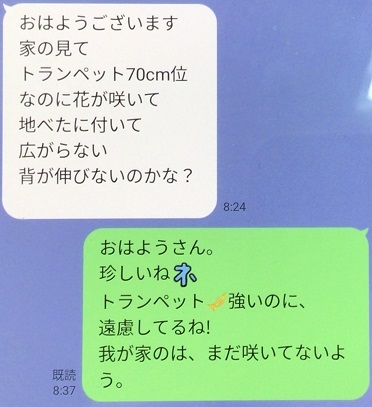 おはようございます
家の見て
トランペット70cm位
なのに花が咲いて
地べたに付いて
広がらない
背が伸びないのかな？
8:24
おはようさん。
珍しいねホ
トランペット🎺強いのに、
遠慮してるね!
我が家のは、まだ咲いてないよ
う。
既読
8:37